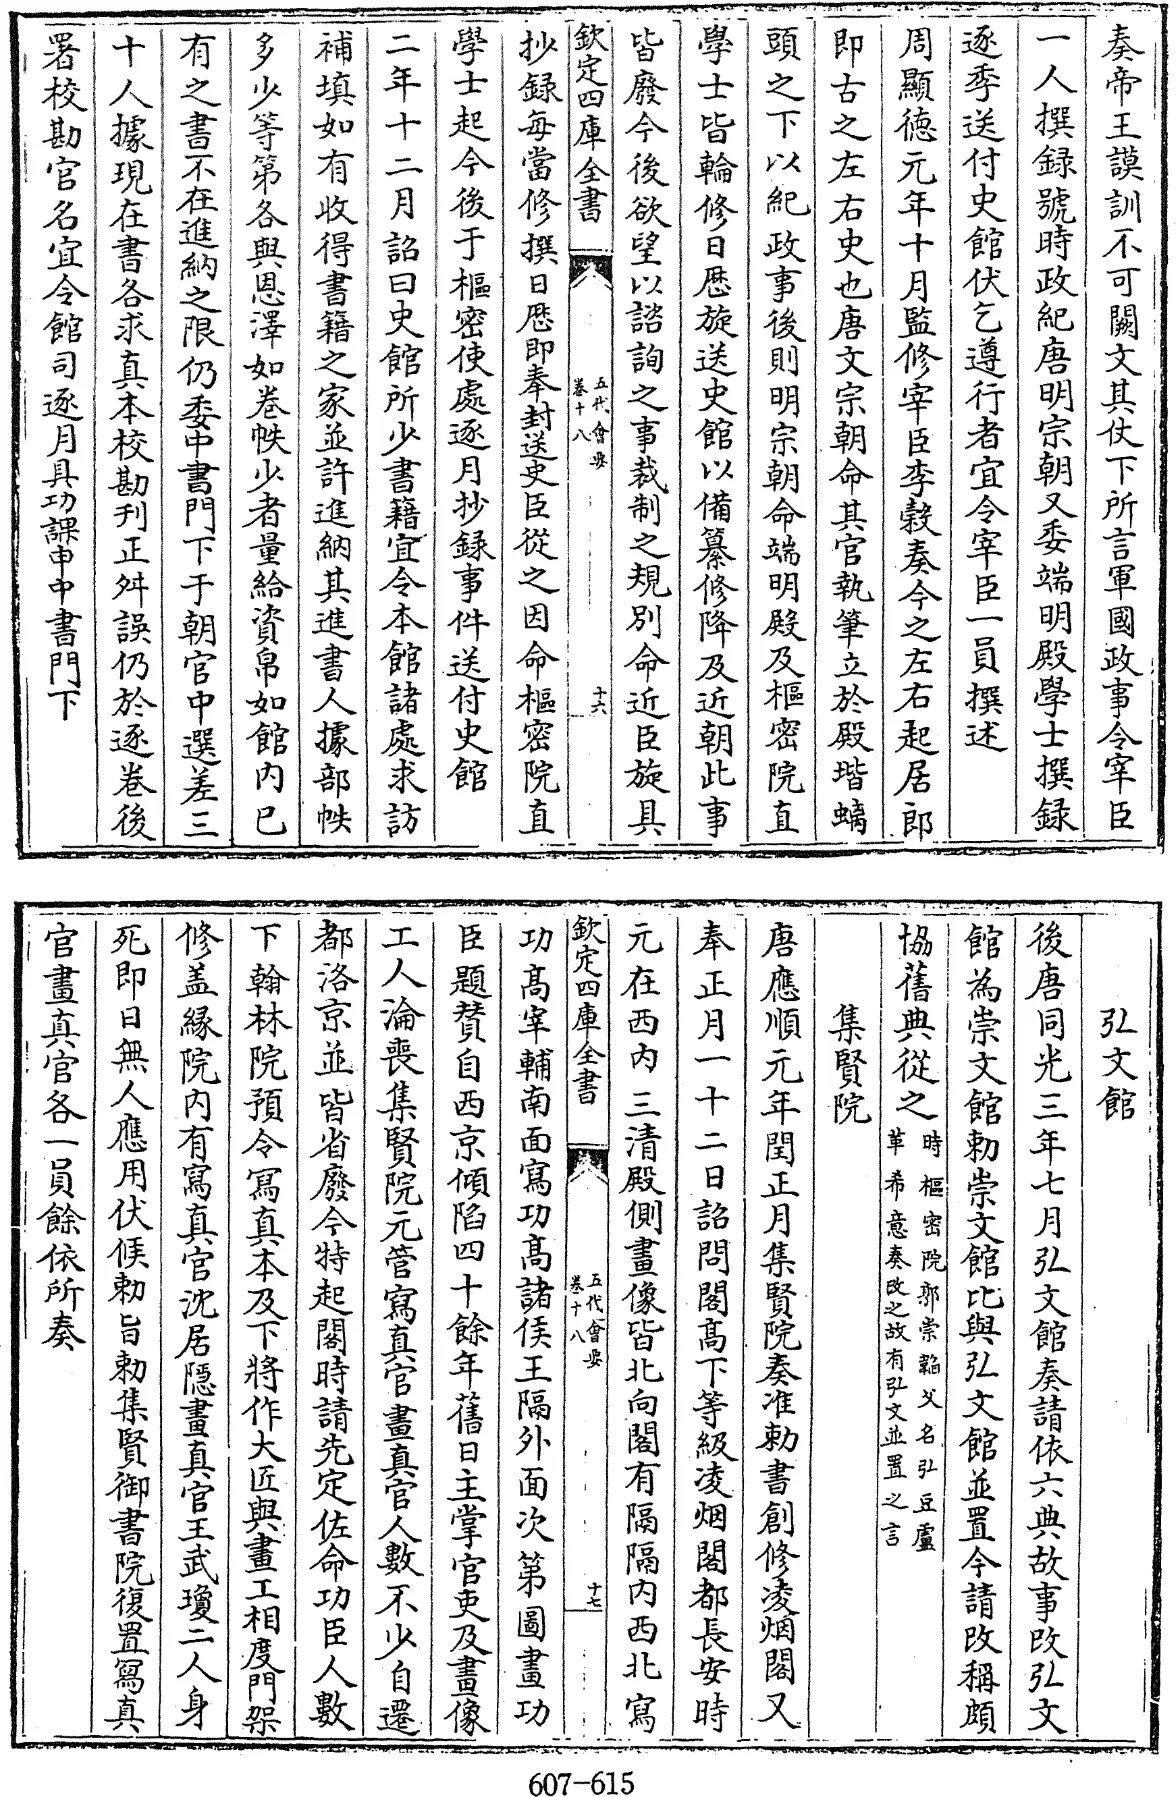 奏帝王謨訓不可闕文其仗下所言軍國政事令宰臣
一人撰録號時政紀唐明宗朝又委端明殿學士撰録
逐季送付史館伏乞遵行者宜令宰臣一員撰述
周顯徳元年十月監修宰臣李穀奏今之左右起居郎
即古之左右史也唐文宗朝命其官執筆立於殿堦螭
頭之下以紀政事後則明宗朝命端明殿及樞密院直
學士皆輪修日厯旋送史館以備纂修降及近朝此事
皆廢今後欲望以諮詢之事裁制之規別命近臣旋具
欽定四庫全書
五代會要
卷十八
十六
抄録每當修撰日厯即奉封送史臣從之因命樞密院直
學士起今後于樞密使處逐月抄録事件送付史館
二年十二月詔曰史館所少書籍宜令本館諸處求訪
補填如有收得書籍之家並許進納其進書人據部帙
多少等第各與恩澤如卷帙少者量給資帛如館内已
有之書不在進納之限仍委中書門下于朝官中選差三
十人據現在書各求真本校勘刋正舛誤仍於逐卷後
署校勘官名宜令館司逐月具功課申中書門下
弘文館
後唐同光三年七月弘文館奏請依六典故事改弘文
館為崇文館勅崇文館比與弘文館並置今請改稱頗
協舊典從之
時樞密院郭崇韜父名弘豆盧
革希意奏改之故有弘文並置之言
集賢院
唐應順元年閏正月集賢院奏准勅書創修凌烟閣又
奉正月一十二日詔問閣髙下等級凌烟閣都長安時
元在西内三清殿側畫像皆北向閣有隔隔内西北寫
欽定四庫全書
五代會要
卷十八
十七
功髙宰輔南面寫功髙諸侯王隔外面次第圖畫功
臣題賛自西京傾陷四十餘年舊日主掌官吏及畫像
工人淪喪集賢院元管寫真官畫真官人數不少自遷
都洛京並皆省廢今特起閣時請先定佐命功臣人數
下翰林院預令寫真本及下將作大匠與畫工相度門架
修盖縁院内有寫真官沈居隠畫真官王武瓊二人身
死即日無人應用伏候勅旨勅集賢御書院復置寫真
官畫真官各一員餘依所奏
607-615